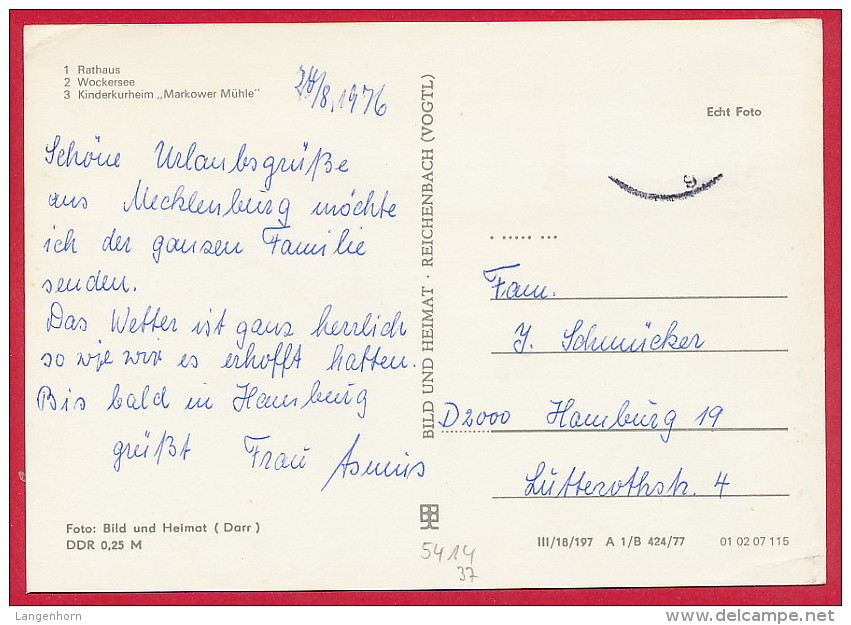 1 Rathaus
2 Wockersee
3 Kinderkurheim „Markower Mühle"
24/8.1976
Schöne Urlaubsgrüße
aus Mecklenburg möchte
ich der ganzen Familie
senden.
Das Wetter ist ganz herrlich
so wie wir es erhofft hatten.
Bis bald in Hamburg
grüßt Frau Asmus
Foto: Bild und Heimat ( Darr )
DDR 0,25 M
BILD UND HEIMAT · REICHENBACH (VOGTL)
Echt Foto
Fam.
J. Schmücker
D2000 Hamburg 19
Lutterothstr. 4
III/18/197 A 1/B 424/77 01 02 07 115
5414
37
Langenhorn
delcampe.net